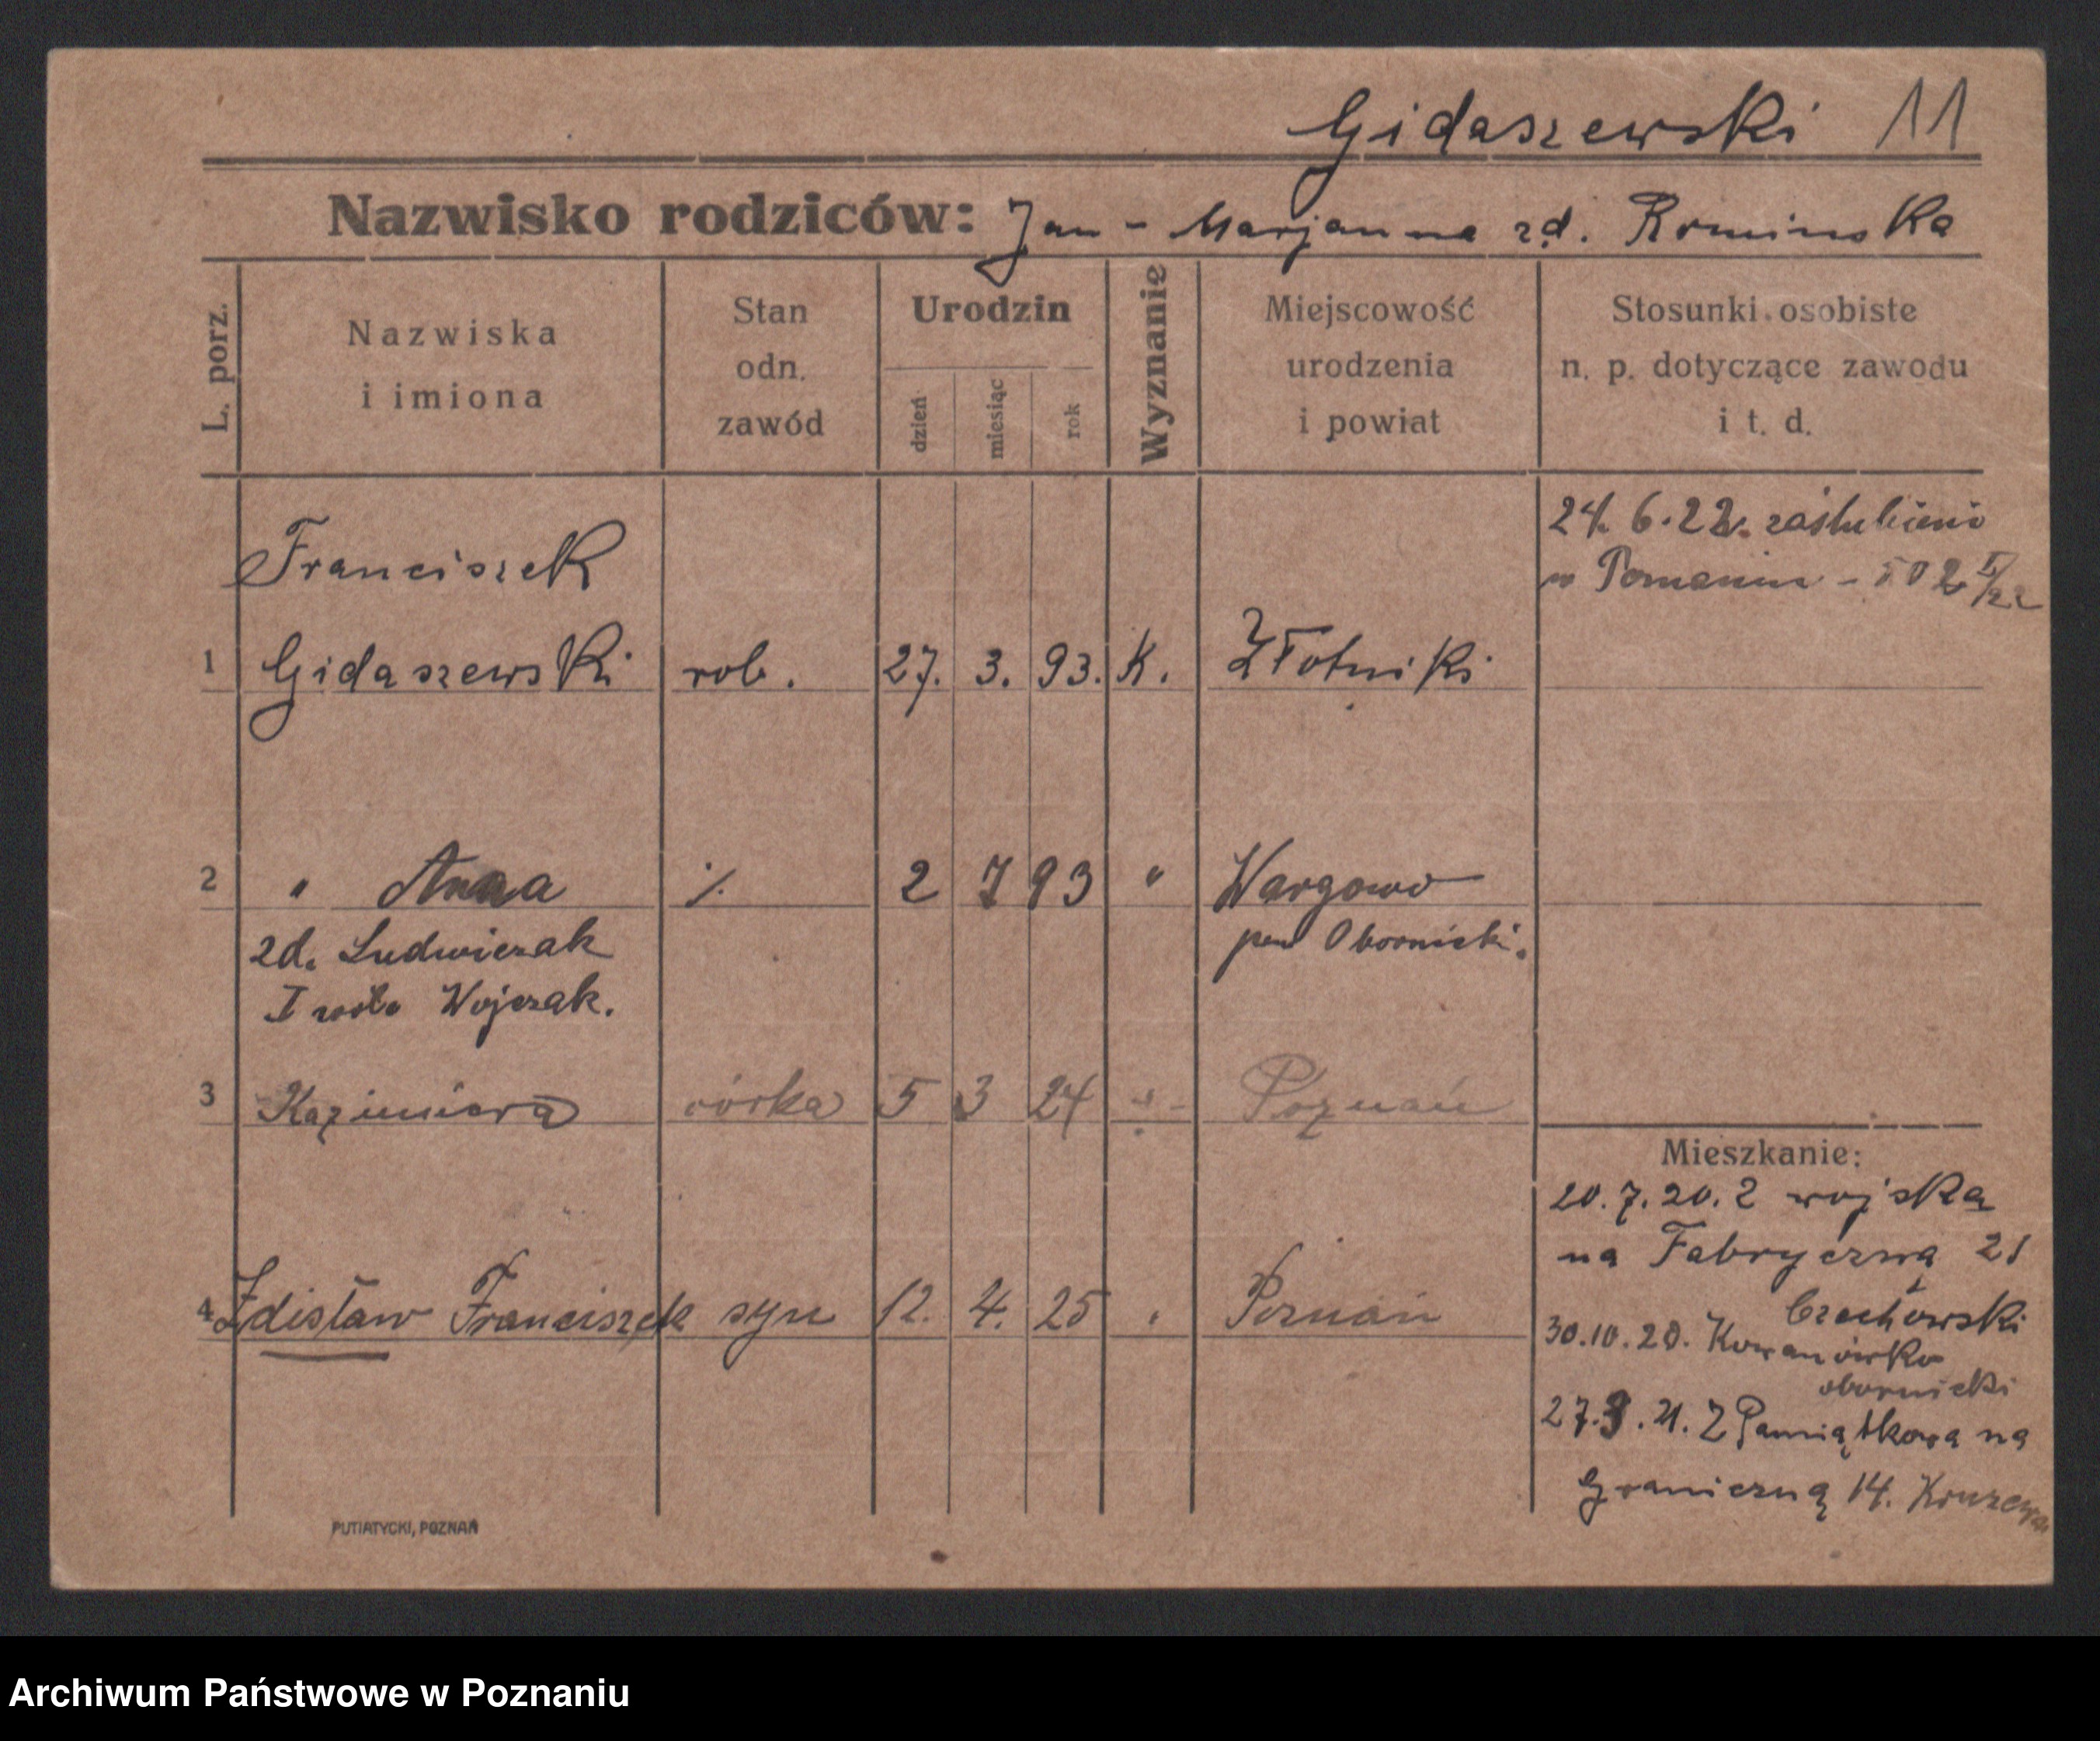 Gidaszewski 11
Nazwisko rodziców: Jan - Marjanna zd. Rominska
L. porz.
Nazwiska
i imiona
Stan
odn.
zawód
Urodzin
dzień
miesiąc
rok
Wyznanie
Miejscowość
urodzenia
i powiat
Stosunki osobiste
n. p. dotyczące zawodu
i t. d.
24. 6. 22. zaślubieni
w Poznaniu - 502
Franciszek
1 Gidaszewski rob. 27. 3. 93. K. Złotniki
2 " Anna ·/. 2 7 93 " Wargowo
zd. Ludwiczak pow Obornicki.
I voto Wojczak.
3 Kazimiera córka 5 3 24 " Poznań
4 Zdisław Franciszek syn 12. 4. 25 " Poznań
Mieszkanie:
20. 7. 20. Z wojska
na Fabryczną 21
Czechowski
30. 10. 20. Kowanówko
obornicki
27. 21. Z Pamiątkowa na
Graniczną 14.
PUTIATYCKI, POZNAŃ
Archiwum Państwowe w Poznaniu